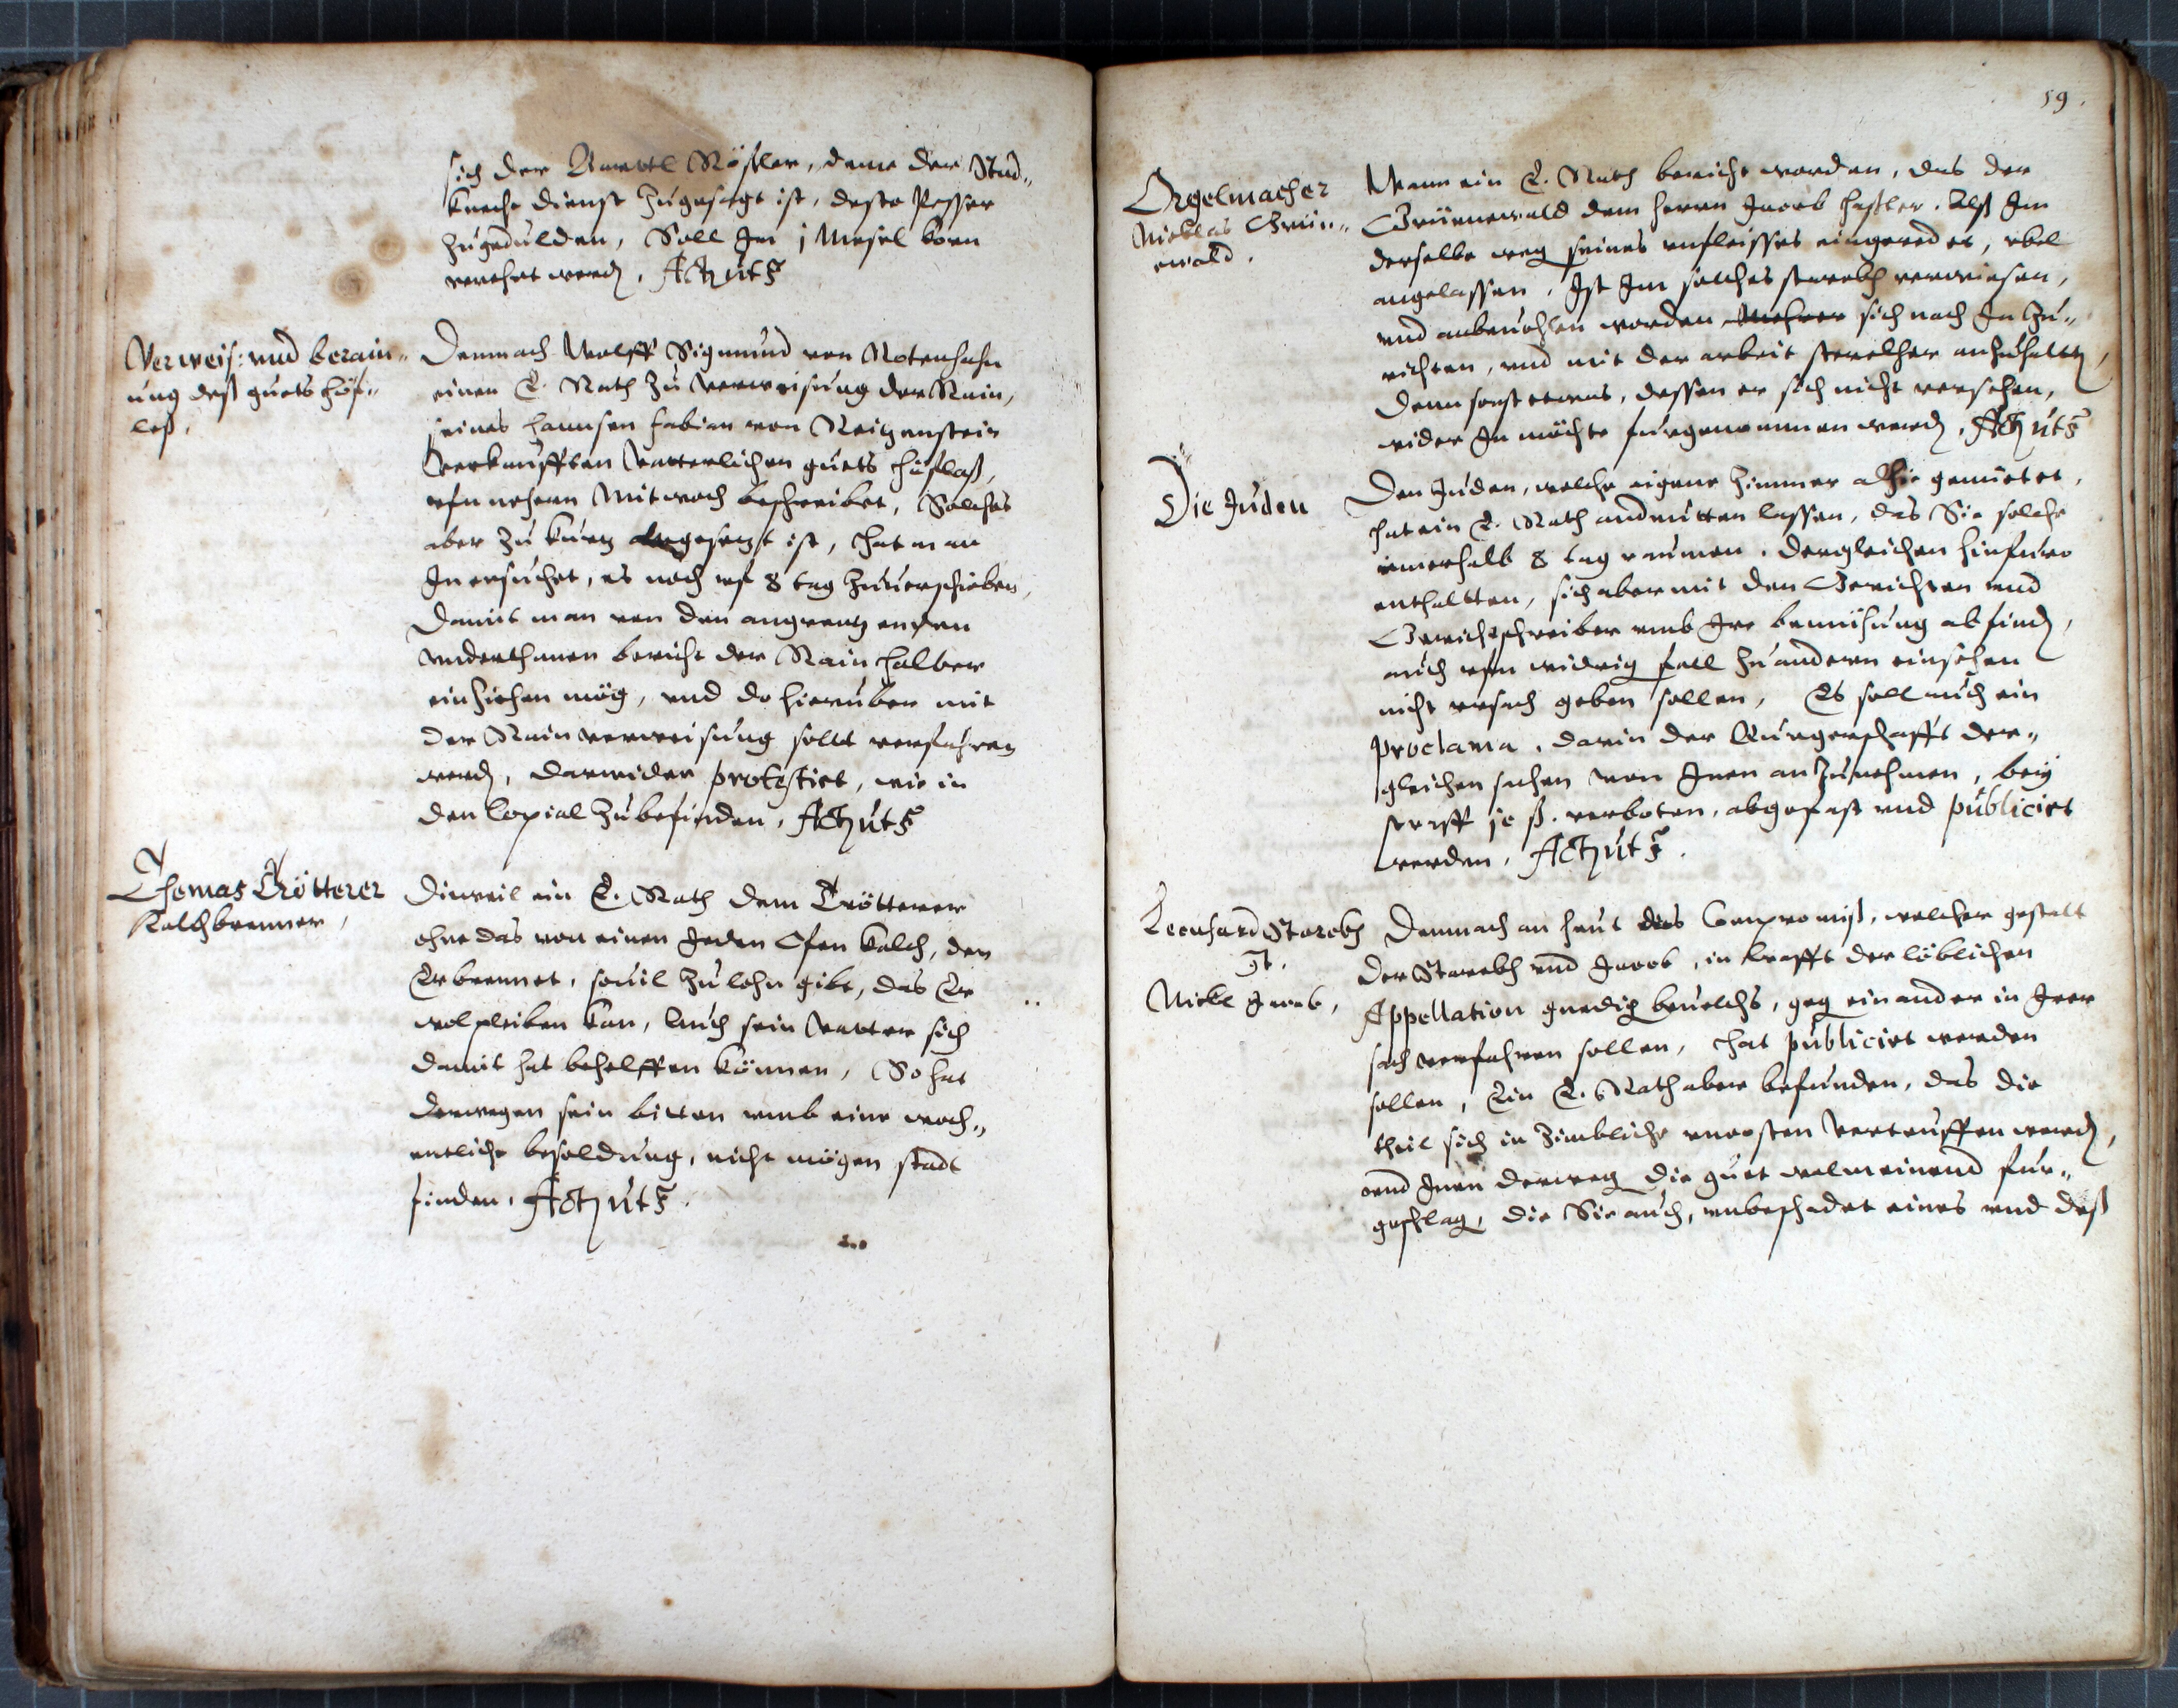 sich der Bartl Rößler, deme der Stad„
knecht dienst zugesagt ist, desto besser
zugedulden, Soll Im j Mesel korn
verehrt werd. Act ut s
Verweis: und berain„
ung deß guets höf„
leß.
Demnach Wolff Sigmund von Rotenhahn
einen E. Rath zu verweisung der Rain,
seines Hannsen Fabian von Reitzenstein
verkaufften vatterlichen guets Höflaß,
ufn nehern Mitwoch beschreibet, Solches
aber zu kurtz angesetzt ist, hat man
In ersuchet, es noch uf 8 tag zuverschieben,
Damit man von den angrentzenden
underthanen bericht der Rain halber
einziehen mög, und do hierüber mit
der Rain verweisung sollt verfahren
werd, darwider protestirt, wie in
den Copial zubefinden, Act ut s
Thomas Trötterer
Kalchbrenner,
Dieweil ein E. Rath dem Trötterer
ohne das von einen Jeden Ofen kalch, den
Er brennet, sovil zu lohn gibt, das Er
wol pleiben kan, Auch sein vatter sich
damit hat behelffen können, So hat
derwegen sein bitten umb eine woch„
entliche besoldung, nicht mögen stadt
finden, Act ut s.
59.
Orgelmacher
Nicklas Grün„
ewald.
Wann ein E. Rath bericht worden, das der
Grünewald dem herrn Jacob Haßler, Alß Im
derselbe weg seines unfleisses eingeredet, ubel
angelassen, Ist Im solches starckh verwiesen,
und anbevohlen worden sich nach In zu„
richten, und mit der arbeit anzuhaltt,
Denn sonst etwas, dessen er sich nicht versehen,
wider In möchte furgenommen werd, Act ut s
Die Juden
Den Juden, welche eigene zimmer alhie gemietet,
hat ein E. Rath andeutten lassen, das Sie solche
innerhalb 8 tag raumen, dergleichen hinfuro
enthaltten, sich aber mit den Gerichten und
Gerichtschreiber umb Ire bemühung abfind,
auch ufn widrig fall zu andern einsehen
nicht ursach geben sollen, Es soll auch ein
proclama, darin der Burgerschafft der„
gleichen sachen von Inen anzunehmen, bey
straff io fl. verboten, abgefast und publicirt
werden, Act ut s.
Leonhard Starckh
Ct.
Nickl Jacob,
Demnach an heut das Compromiß, welcher gestalt
der Starckh und Jacob, in krafft der löblichen
Appellation gnedig bevelchs, geg einander in Irer
sach verfahren sollen, hat publicirt werden
sollen, Ein E. Rath aber befunden, das die
theil sich in zimbliche uncosten vertieffen werd,
und Inen derweg die guet wolmeinend fur„
geschlag, die Sie auch, unbeschadet eines und deß